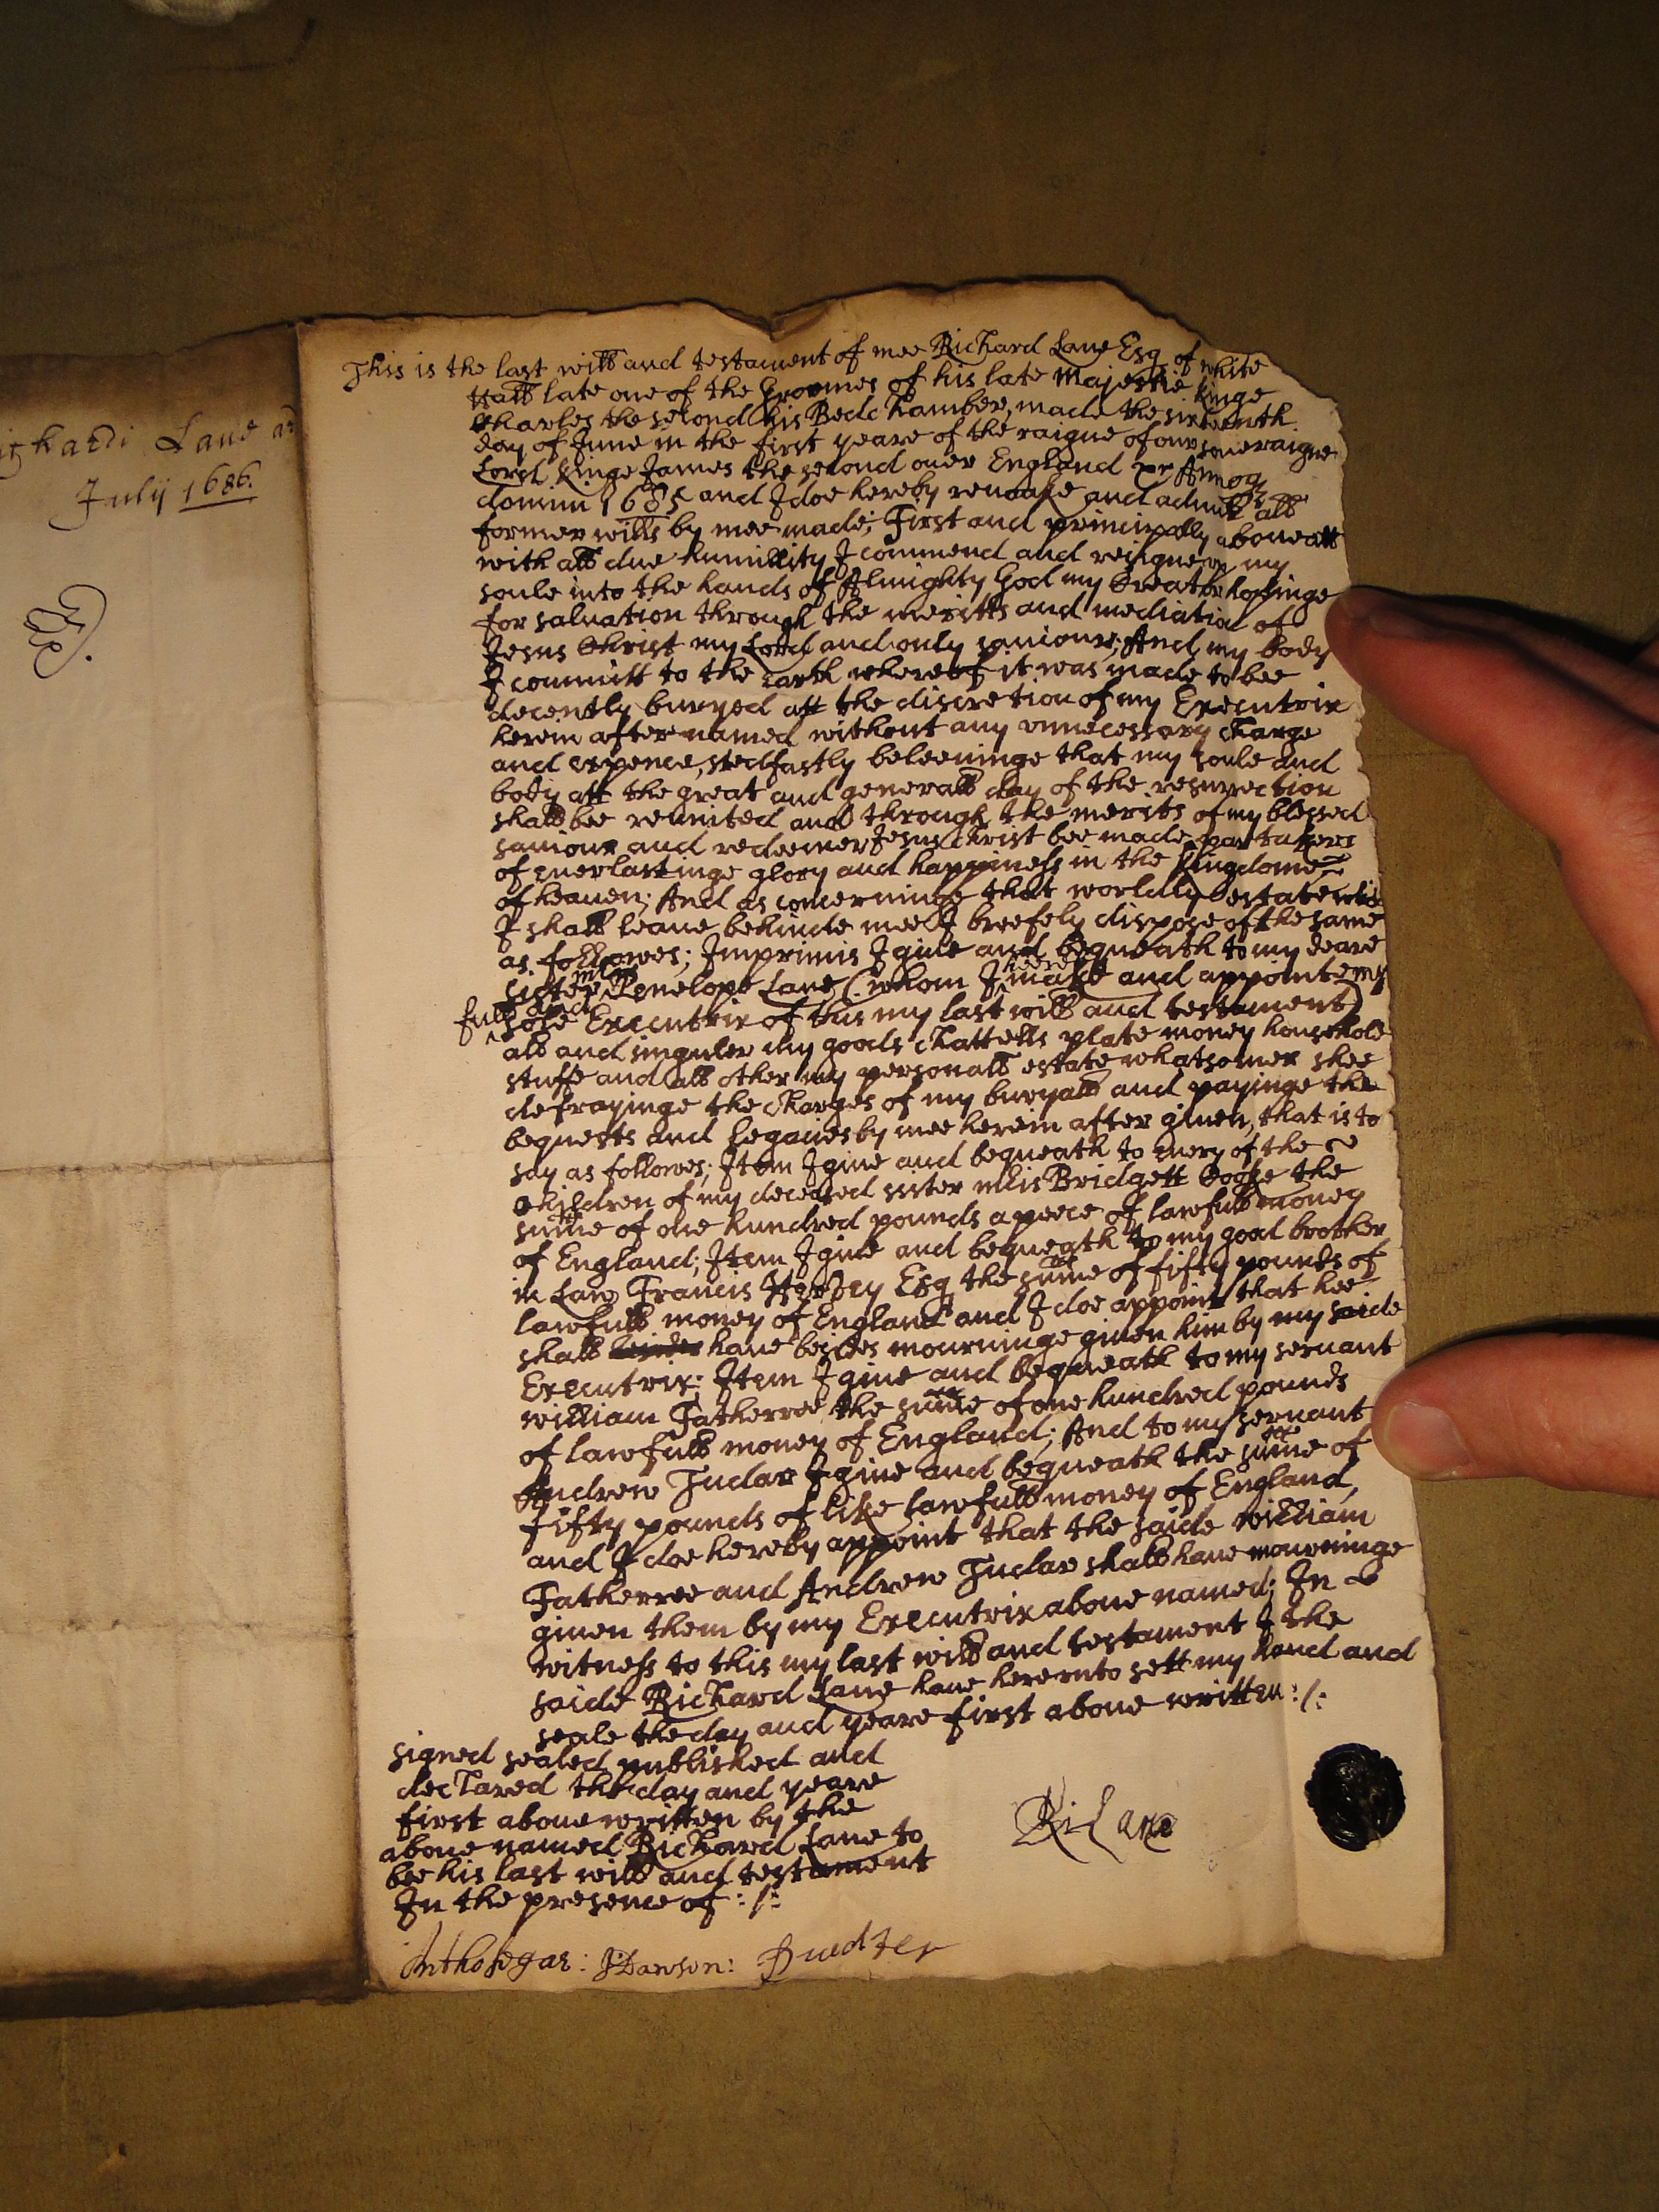 Lane
July 1686.
This is the last will and testament of mee Richard Lane Esq of white
Hall late one of the Groomes of his late Majestie kinge
Charles the second his Bedchamber, made the sixteenth
day of June in the first yeare of the raigne of our soueraigne
Lord kinge James the second ouer England &c Annoq
domini 1685 and I doe hereby reuoake and adnull all
former wills by mee made; First and principally aboue all
with all due humillity I commend and resigne vp my
soule into the hands of Almighty God my Creator hopinge
for saluation through the meritts and mediation of
Jesus Christ my Lord and only sauiour; And my body
I committ to the Earth whereof it was made to bee
decently buryed att the discretion of my Executrix
herein after named without any vnnecessary charge
and expence, stedfastly beleeuinge that my soule and
body att the great and generall day of the resurrection
shall bee reunited and through the merits of my blessed
sauiour and redeemer Jesus Christ bee made partakers
of euerlastinge glory and happiness in the kingdome
of heauen; And as concerninge that worldly estate which
I shall leaue behinde mee I breefely dispose of the same
as followes; Imprimis I giue and bequeath to my deare
sister mrs Penelope Lane (whom I heereby make and appoint my
full and sole Executrix of this my last will and testament)
all and singuler my goods chattells plate money household
stuffe and all other my personall estate whatsoeuer shee
defrayinge the charges of my buryall and payinge the
bequests and Legacies by mee herein after giuen, that is to
say as followes; Item I giue and bequeath to euery of the
children of my deceased sister mis Bridgett Cooke the
sume of one hundred pounds a peece of lawfull money
of England; Item I giue and bequeath to my good brother
in Law Francis Esq the sume of fifty pounds of
lawfull money of England and I doe appoint that hee
shall haue besides mourninge giuen him by my saide
Executrix; Item I giue and bequeath to my seruant
William Fatherree the sume of one hundred pounds
of lawfull money of England; And to my seruant
Andrew Judar I giue and bequeath the sume of
fifty pounds of like lawfull money of England,
and I doe hereby appoint that the saide William
Fatherree and Andrew Judar shall haue mourninge
giuen them by my Executrix aboue named; In
witness to this my last will and testament I the
saide Richard Lane haue herevnto sett my hand and
seale the day and yeare first aboue written :/:
signed sealed published and
declared the day and yeare
first aboue written by the
aboue named Richard Lane to
bee his last will and testament
In the presence of :/:
Ri Lane
Antho Segar: J Dawson: